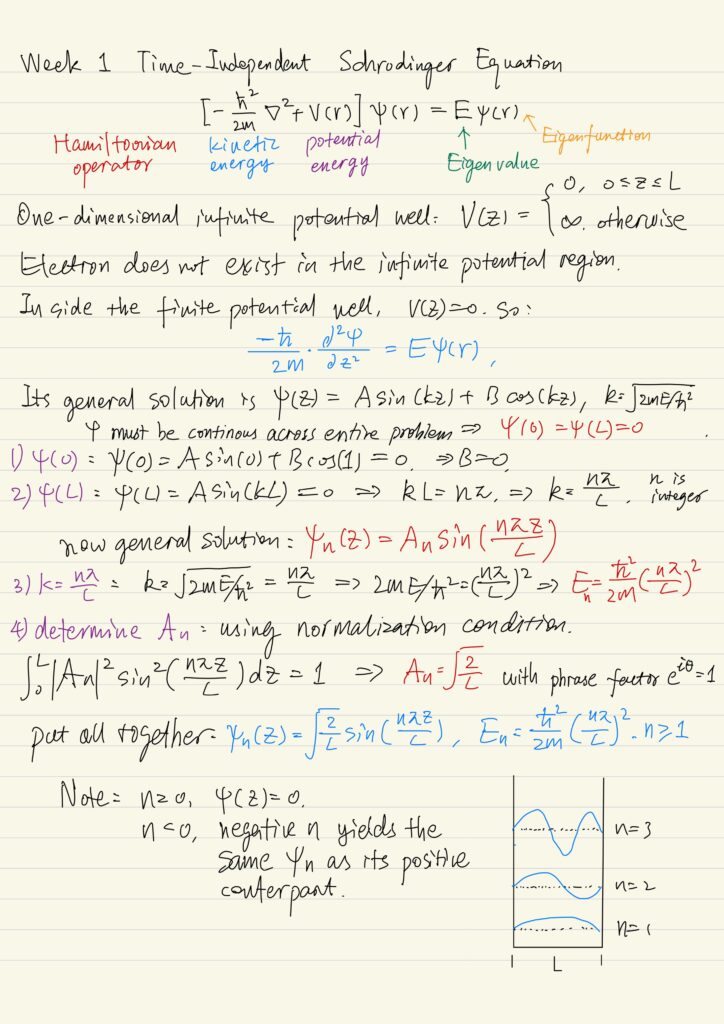 Week 1 Time-Independent Schrodinger Equation
[-ℏ²/2m ∇² + V(r)] ψ(r) = E ψ(r)
Hamiltonian operator kinetic energy potential energy Eigenvalue Eigenfunction
One-dimensional infinite potential well: V(z) = { 0, 0 ≤ z ≤ L
∞. otherwise
Electron does not exist in the infinite potential region.
Inside the finite potential well, V(z)=0. so:
-ℏ/2m · ∂²ψ/∂z² = Eψ(r),
Its general solution is ψ(z) = A sin(kz) + B cos(kz), k = √(2mE/ℏ²)
ψ must be continous across entire problem ⇒ ψ(0) = ψ(L) = 0
1) ψ(0) : ψ(0) = A sin(0) + B cos(1) = 0. ⇒ B=0,
2) ψ(L) : ψ(L) = A sin(kL) = 0 ⇒ kL = nπ, ⇒ k = nπ/L. n is integer
now general solution: ψn(z) = An sin(nπz/L)
3) k = nπ/L : k = √(2mE/ℏ²) = nπ/L ⇒ 2mE/ℏ² = (nπ/L)² ⇒ En = ℏ²/2m (nπ/L)²
4) determine An : using normalization condition.
∫₀ᴸ |An|² sin²(nπz/L) dz = 1 ⇒ An = √(2/L) with phrase factor e^{iθ} = 1
put all together: ψn(z) = √(2/L) sin(nπz/L), En = ℏ²/2m (nπ/L)². n ≥ 1
Note: n=0, ψ(z)=0.
n<0, negative n yields the
same ψn as its positive
couterpant.
n=3
n=2
n=1
L